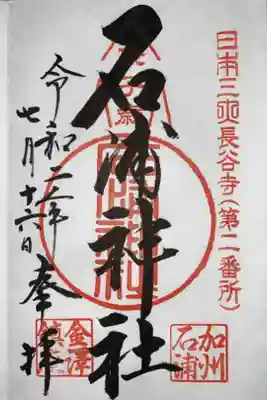 日本三 長谷寺(第二番所)
加州
石浦
石浦神社
奉拝
令和二年
七月十六日
金澤